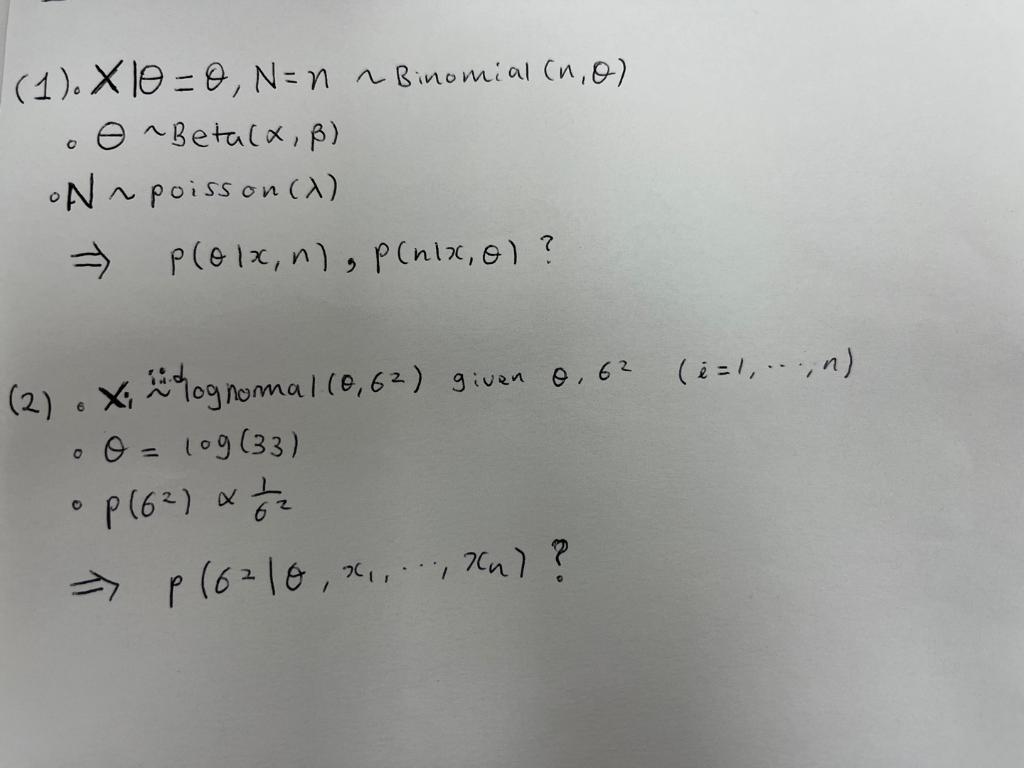 (1). X|Θ = θ, N = n ~ Binomial(n, θ)
∘ Θ ~ Beta(α, β)
∘ N ~ poisson(λ)
⇒ p(θ|x, n), p(n|x, θ) ?
(2) ∘ Xᵢ iid~ lognormal(θ, σ²) given θ, σ² (i = 1, ⋯, n)
∘ θ = log(33)
∘ p(σ²) ∝ 1/σ²
⇒ p(σ²|θ, x₁, ⋯, xₙ) ?